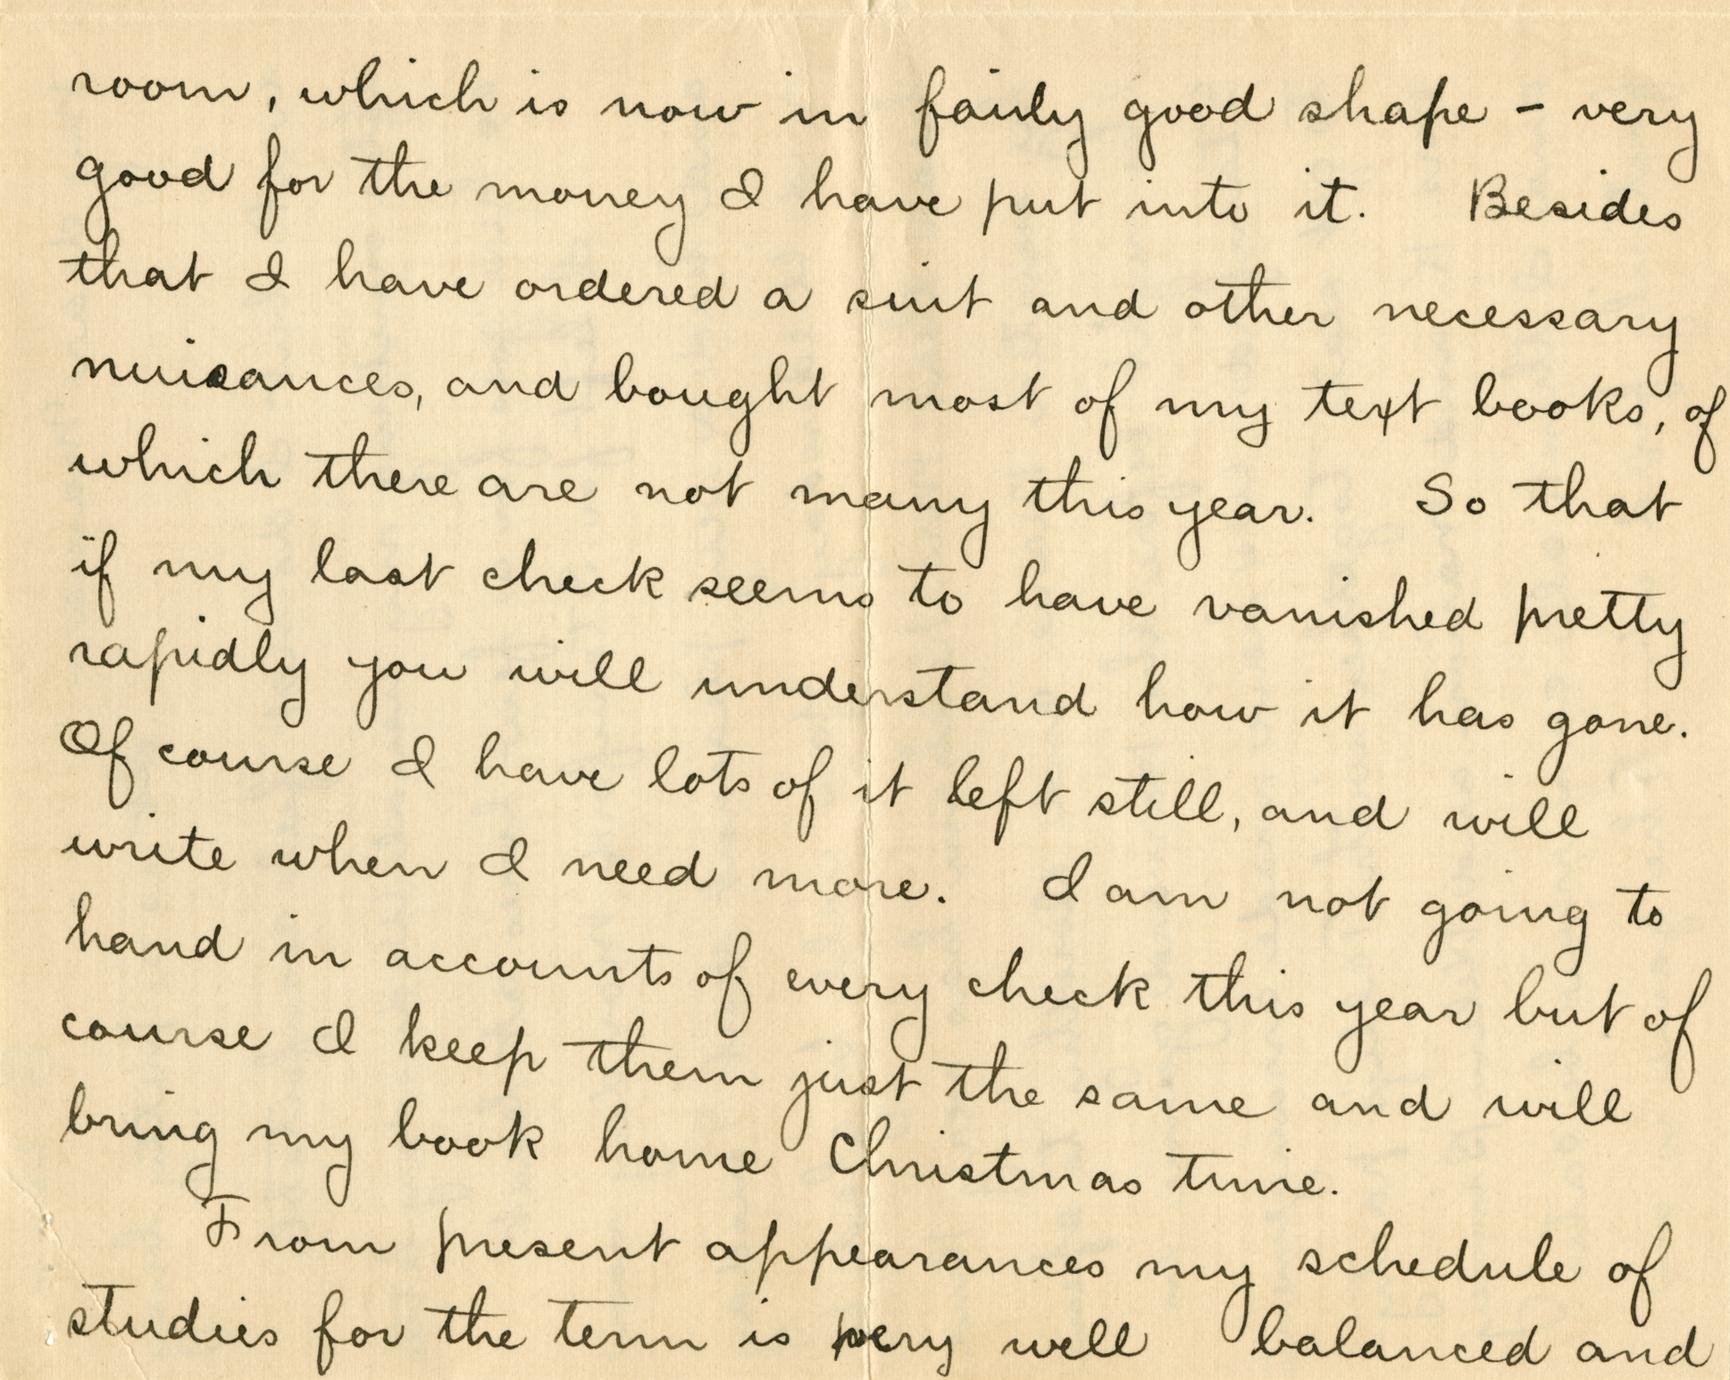 room, which is now in fairly good shape - very
good for the money I have put into it. Besides
that I have ordered a suit and other necessary
nuisances, and bought most of my text books, of
which there are not many this year. So that
if my last check seems to have vanished pretty
rapidly you will understand how it has gone.
Of course I have lots of it left still, and will
write when I need more. I am not going to
hand in accounts of every check this year but of
course I keep them just the same and will
bring my book home Christmas time.
From present appearances my schedule of
studies for the term is very well balanced and